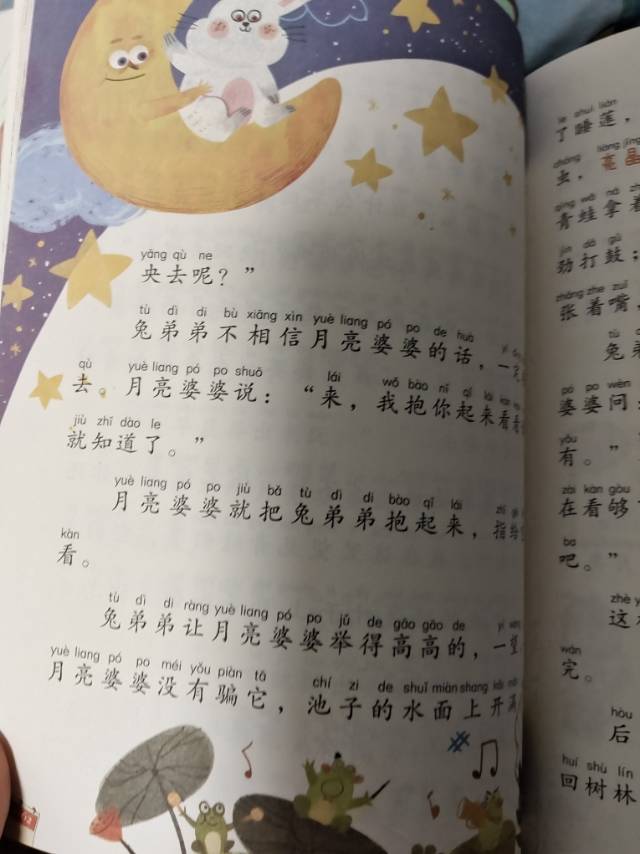 yāng qù ne
央去呢？”
tù dì di bù xiāng xìn yuè liang pó po de huà
兔弟弟不相信月亮婆婆的话，一
qù yuè liang pó po shuō lái wǒ bào nǐ qǐ lái kàn
去。月亮婆婆说：“来，我抱你起来看看
jiù zhī dào le
就知道了。”
yuè liang pó po jiù bǎ tù dì di bào qǐ lái zhǐ
月亮婆婆就把兔弟弟抱起来，指给
kàn
看。
tù dì di ràng yuè liang pó po jǔ de gāo gāo de yí
兔弟弟让月亮婆婆举得高高的，一望
yuè liang pó po méi yǒu piàn tā chí zi de shuǐ miàn shang kāi mǎn
月亮婆婆没有骗它，池子的水面上开满
12
le shuì lián
了睡莲，
chóng liàng jīng
虫，亮晶
qīng wā ná zhe
青蛙拿着
jìn dǎ gǔ
劲打鼓；
zhāng zhe zuǐ
张着嘴，
tù
兔
pó po wèn
婆婆问：
yǒu
有。”
zài kàn gòu
在看够
ba
吧。”
zhè
这
wán
完。
hòu
后
huí shù lín
回树林